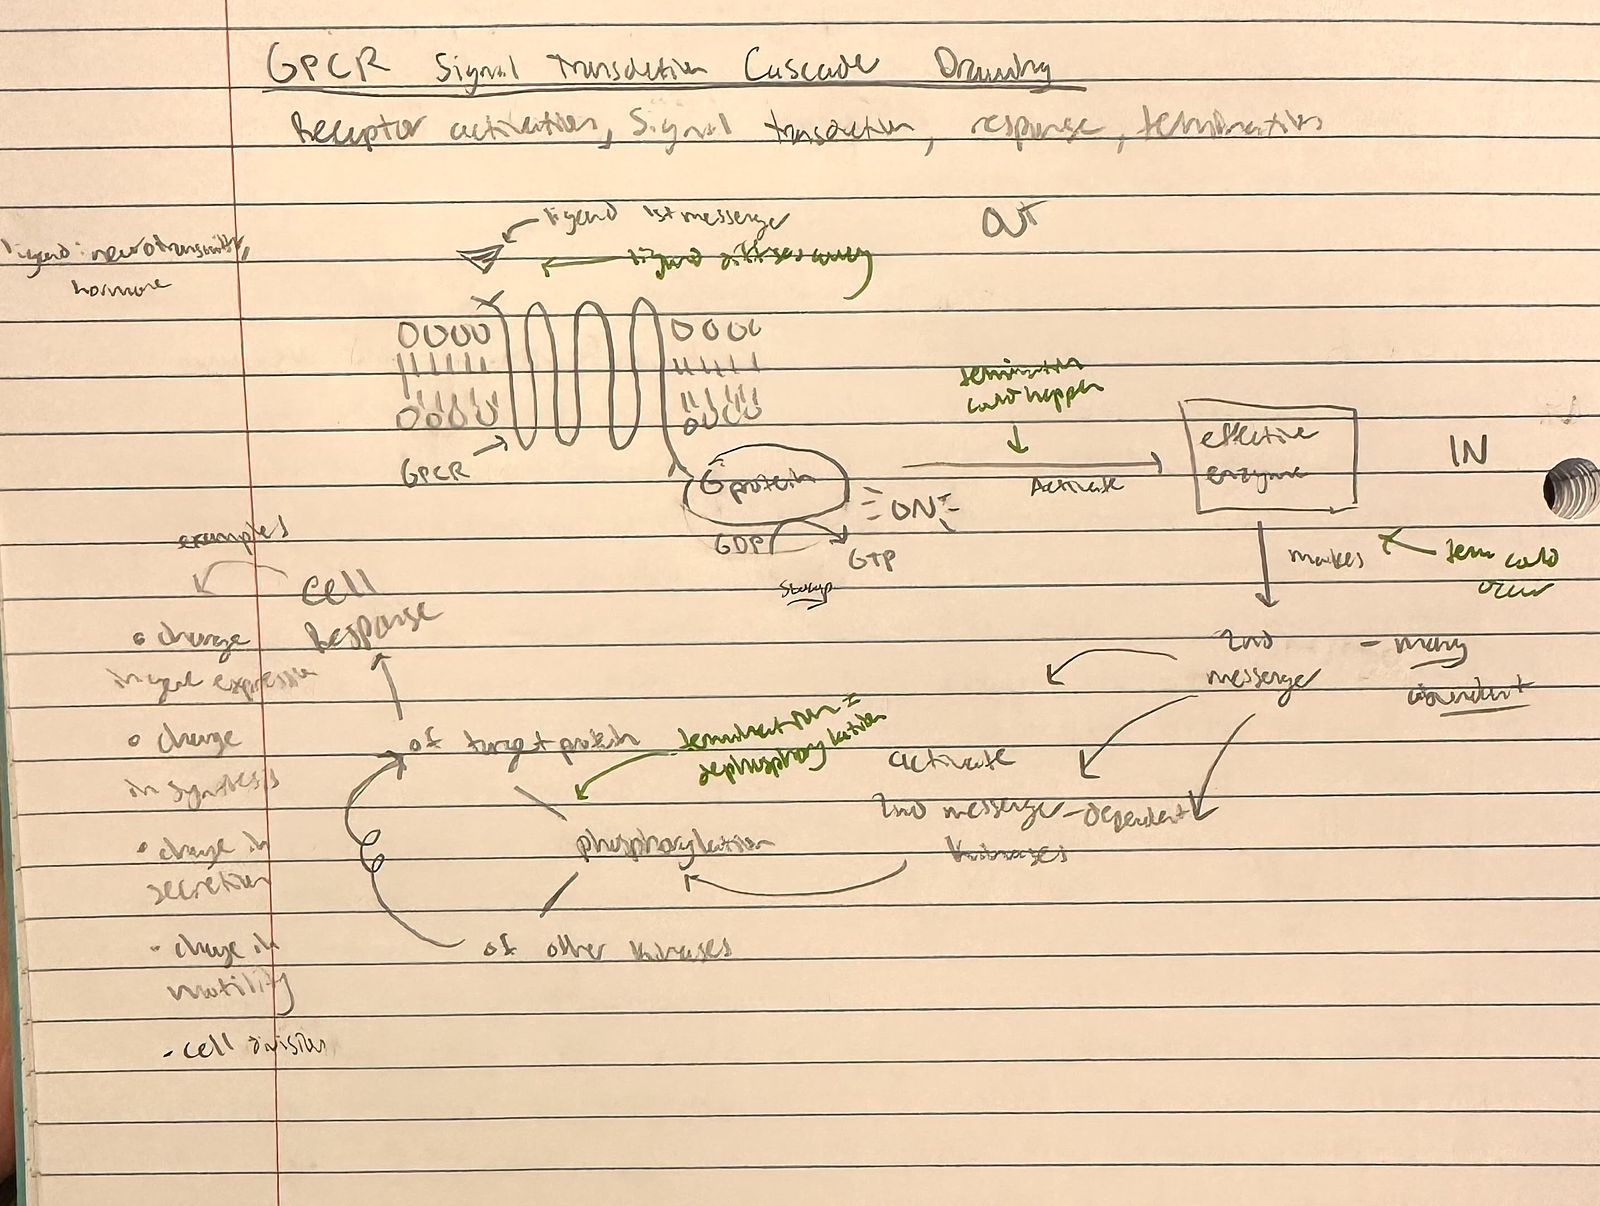 GPCR Signal Transduction Cascade Drawing
Receptor activation, Signal transduction, response, termination
OUT
ligand 1st messenger
ligand diffuses away
ligand: neurotransmitter,
hormone
termination
could happen
effective
enzyme
IN
GPCR
G protein
ON
Activate
GDP
GTP
swap
makes
term could
occur
2nd
messenger
- many
abundant
activate
2nd messenger-dependent
kinases
termination =
dephosphorylation
of target protein
phosphorylation
of other kinases
cell
Response
examples
• change
in gene expression
• change
in synthesis
• change in
secretion
• change in
motility
- cell division